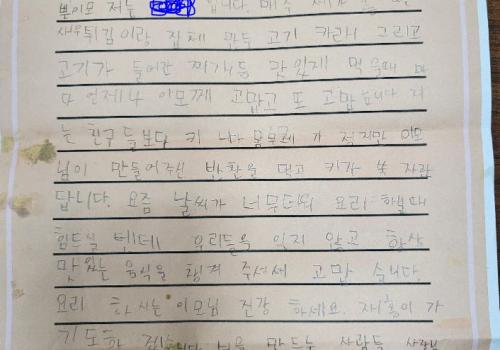 뿐이모 저는 입니다. 매주
새우튀김이랑 잡채 만두 고기 카레 그리고
고기가 들어간 찌개등 맛있게 먹을때 마
다 언제나 이모께 고맙고 또 고맙습니다 저
는 친구들보다 키 나 몸무게 가 적지만 이모
님이 만들어주신 반찬을 먹고 키가 쑥 자랐
답니다. 요즘 날씨가 너무더워 요리 하실때
힘드실 텐데 우리들을 잊지 않고 항상
맛있는 음식을 챙겨 주셔서 고맙 습니다.
요리 하시는 이모님 건강 하세요. 이가
기도할 만드는 사람들